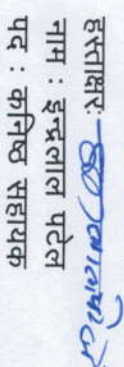 हस्ताक्षरः
नाम : इन्द्रलाल पटेल
पद : कनिष्ठ सहायक